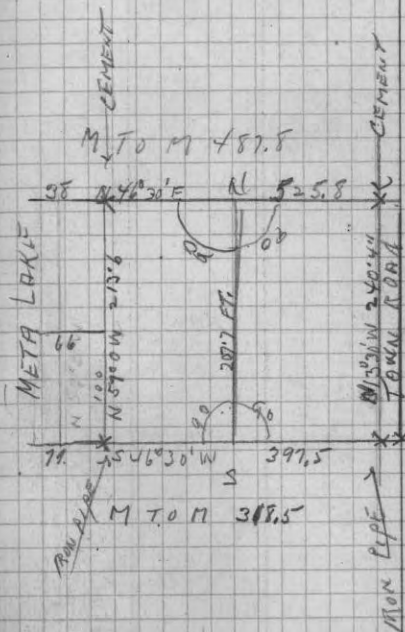 CEMENT
CEMENT
M TO M 487.8
38 N 46° 30' E N 525.8
90 90
META LAKE
66
N 59° 0 W 213.6
207.7 FT.
N 13° 30' W 240.4
TOWN ROAD
90 90
79. S 46° 30' W 397.5
S
IRON PIPE
M TO M 318.5
IRON PIPE